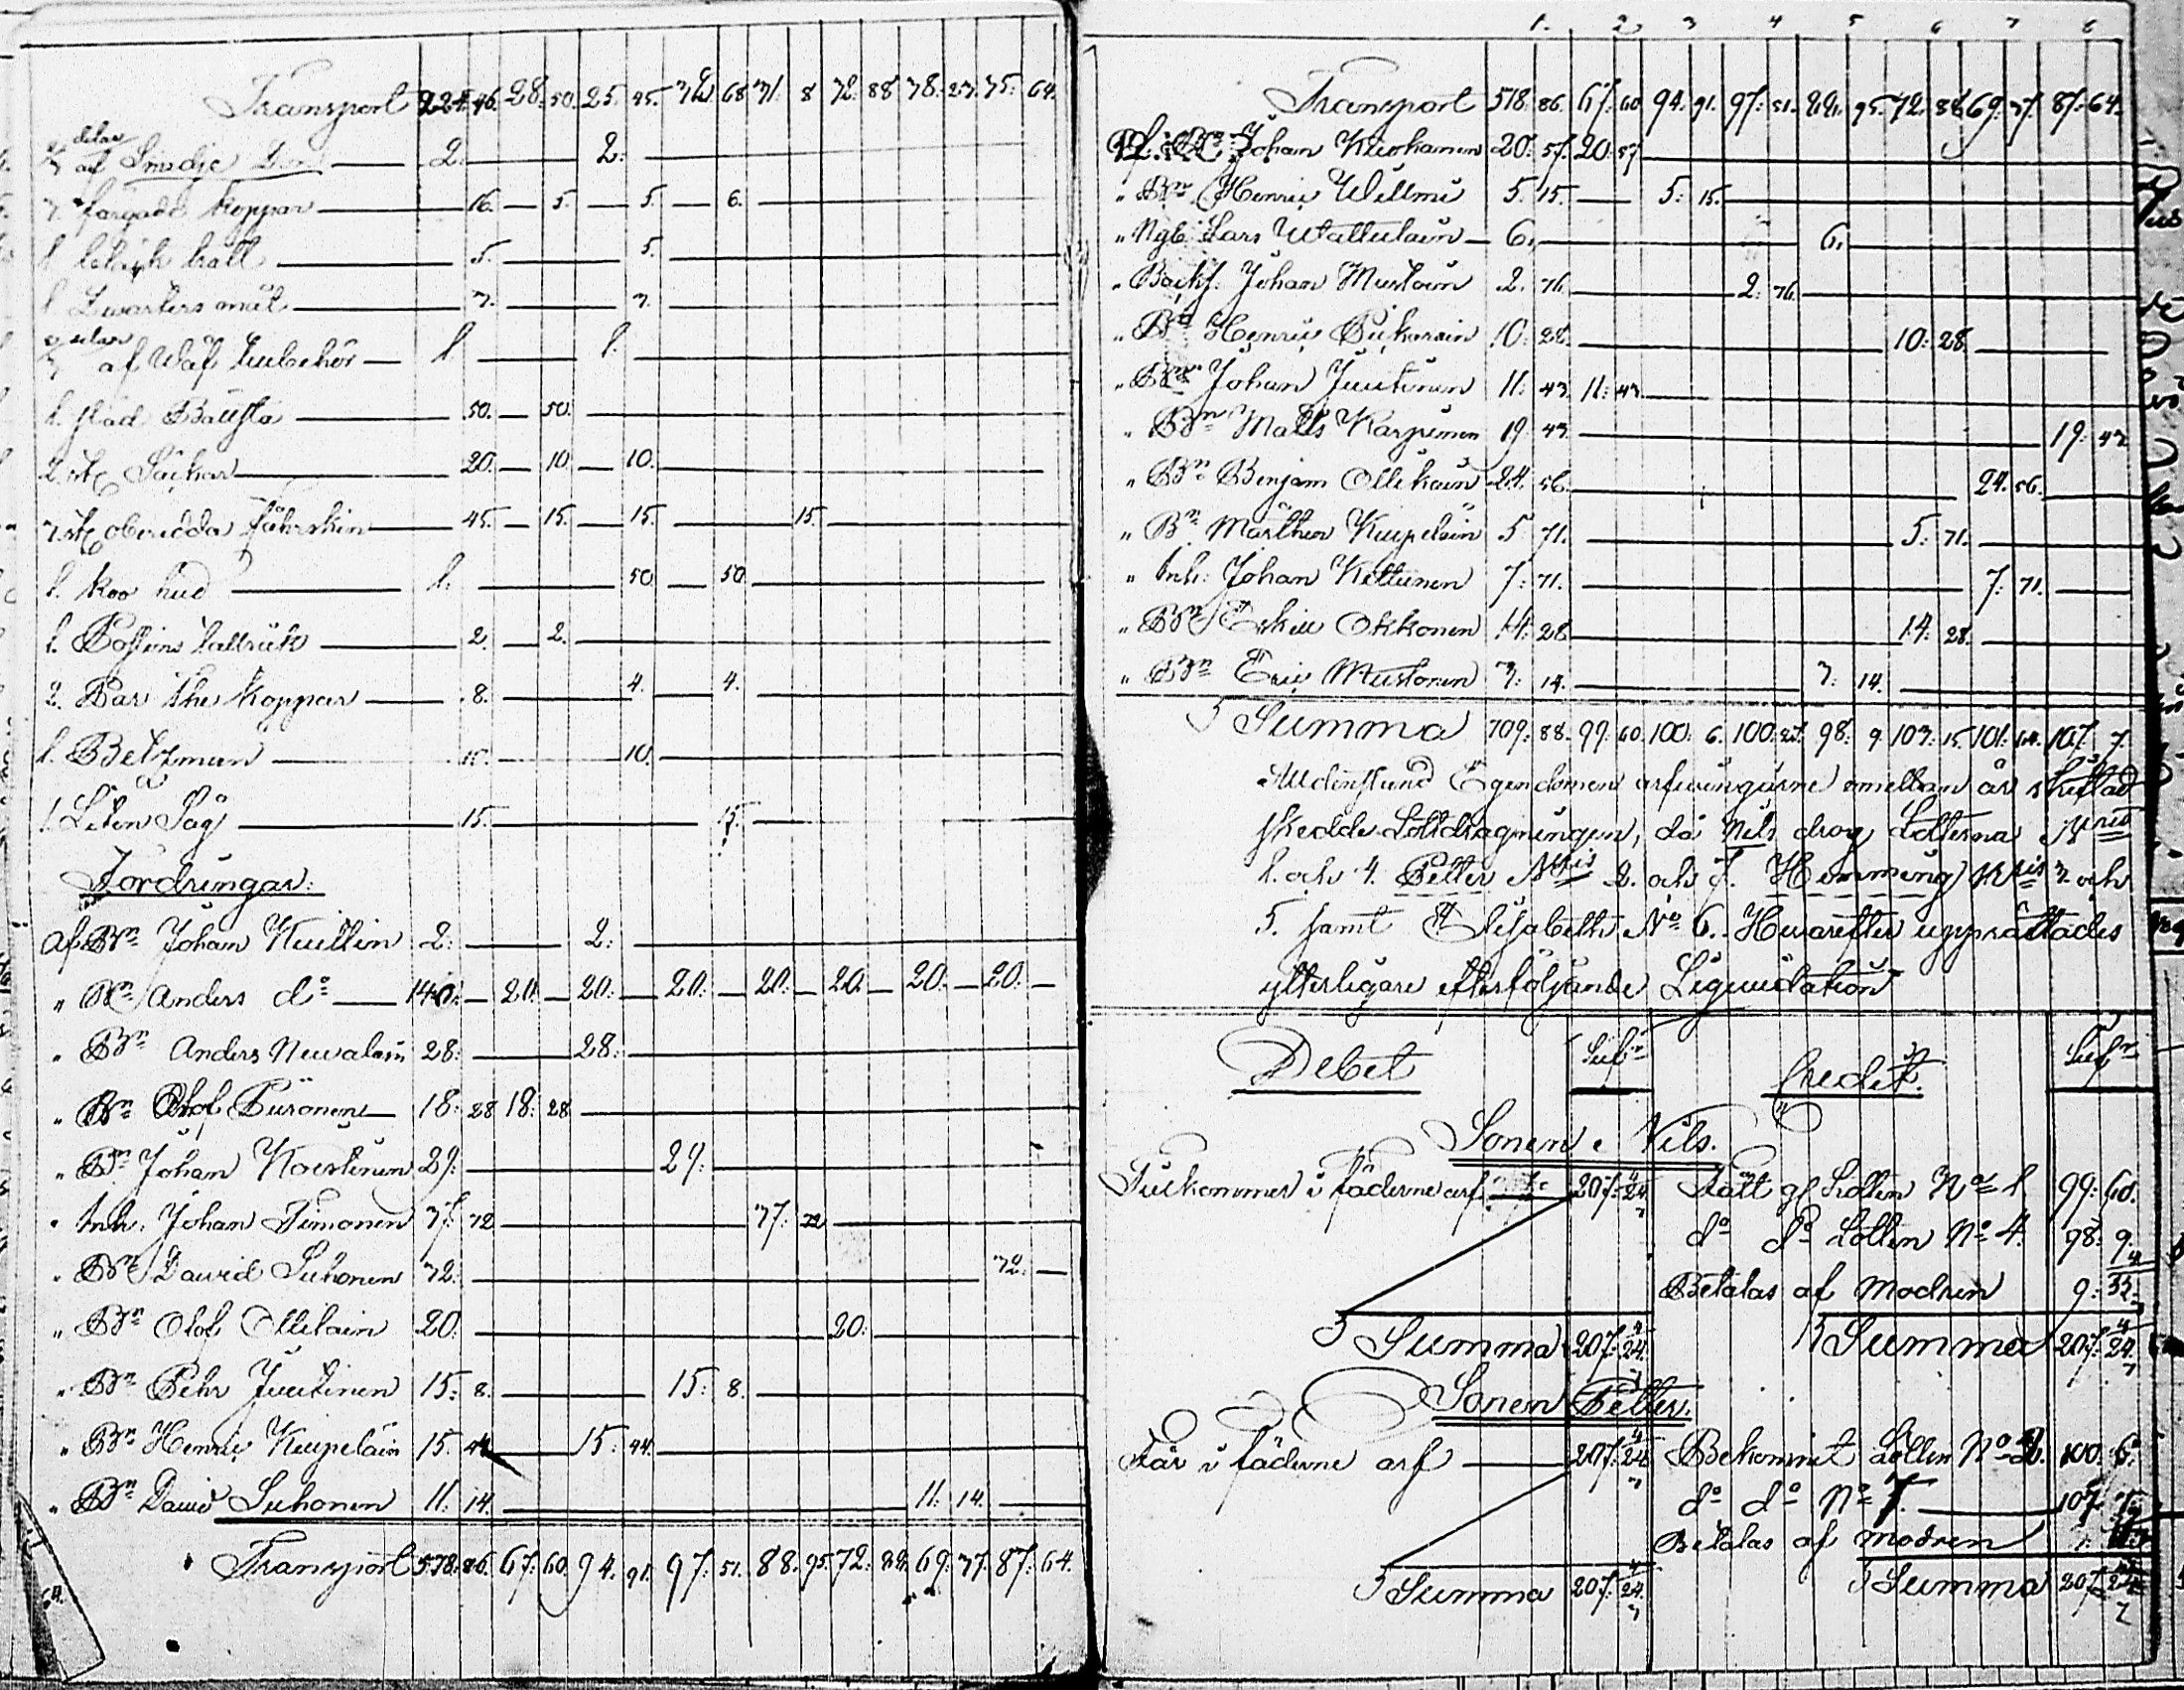 Transport 224. 46. 28. 50. 25. 45. 32. 68 31. 8 32. 88 38. 23. 35. 64.
3 delar af Smidje 2. 2.
3. färgade koppar 16. 5. 5. 6.
1. 5. 5.
1. Qwarters måt 3. 3.
3 delar af Wäf tilbehör 1. 1.
1. 50. 50.
2. st. Säckar 20. 10. 10.
3. st. oberedda fåhrskin 45. 15. 15. 15.
1. Koo hud 1. 50 50.
1. 2. 2.
2. Par the Koppar 8. 4. 4.
1. Betzman 10. 10.
1. Liten Såg 15. 15.
Fordringar:
Af Bn Johan 2: 2:
" Bn Anders do 140: 20: 20: 20: 20: 20: 20: 20:
" Bn Anders Newalain 28: 28:
" Bn Olof Piironen 18: 28 18: 28
" Bn Johan 29: 29:
" Inh. Johan Timonen 37: 72 37: 72
" Bn David Suhonen 32: 32:
" Bn Olof Ollilain 20: 20:
" Bn Pehr Juutinen 15: 8. 15: 8.
" Bn Henric Kuipelain 15. 44 15: 44.
" Bn David Suhonen 11: 14. 11: 14.
Transport 518: 86. 67: 60. 94. 91. 97: 51. 88. 95. 72: 88. 69: 37. 87: 64.
1. 2 3 4 5 6 7 8
Transport 518. 86. 67: 60 94. 91. 97: 51. 88. 95. 72. 88 69: 37. 87: 64.
Af Bn Johan 20: 57. 20: 57
" Bn Henric Willmi 5. 15. 5: 15.
" Ngb. Lars Wattulain 6. 6.
" Backst. Johan Muston 2. 76. 2: 76.
" Bn Henric 10: 28. 10: 28.
" Bn Johan Juutinen 11: 43. 11: 43.
" Bn Matts Karpinen 19: 43. 19: 43
" Bn Benjam Ollikain 24. 56. 24. 56.
" Bn Mårthen Kuipelain 5 71. 5: 71.
" Inh: Johan Kettunen 7: 71. 7: 71.
" Bn Eskill Okkonen 14: 28 14: 28.
" Bn Eric Mustonen 3: 14. 3: 14.
Summa 709: 88. 99: 60. 100: 6. 100: 27. 98: 9. 103: 15. 101: 64. 107: 7.
Egendomen arfwingarne emellan är skiftad
skedde Lottdragningen, då Nils drog Lotterna
1. och 4. Petter 2. och 7. Hemming 3. och
5. samt Elisabeth No 6. Hwarefter upprättades
ytterligare efterföljande Liquidation
Debet Credit.
Sonen Nils.
Tilkommer i fäderne arf 207: 24 4/7 Fått af Lotten No 1. 99: 60.
do do Lotten No 4. 98: 9.
Betalas af Modren 9: 55 4/7
Summa 207: 24 4/7 Summa 207: 24 4/7
Sonen Petter.
Får i fäderne arf 207: 24 4/7 Bekommit Lotten No 2. 100. 6.
do do No 7. 107. 7.
Betalas af modren
Summa 207: 24 4/7 Summa 207: 24 4/7